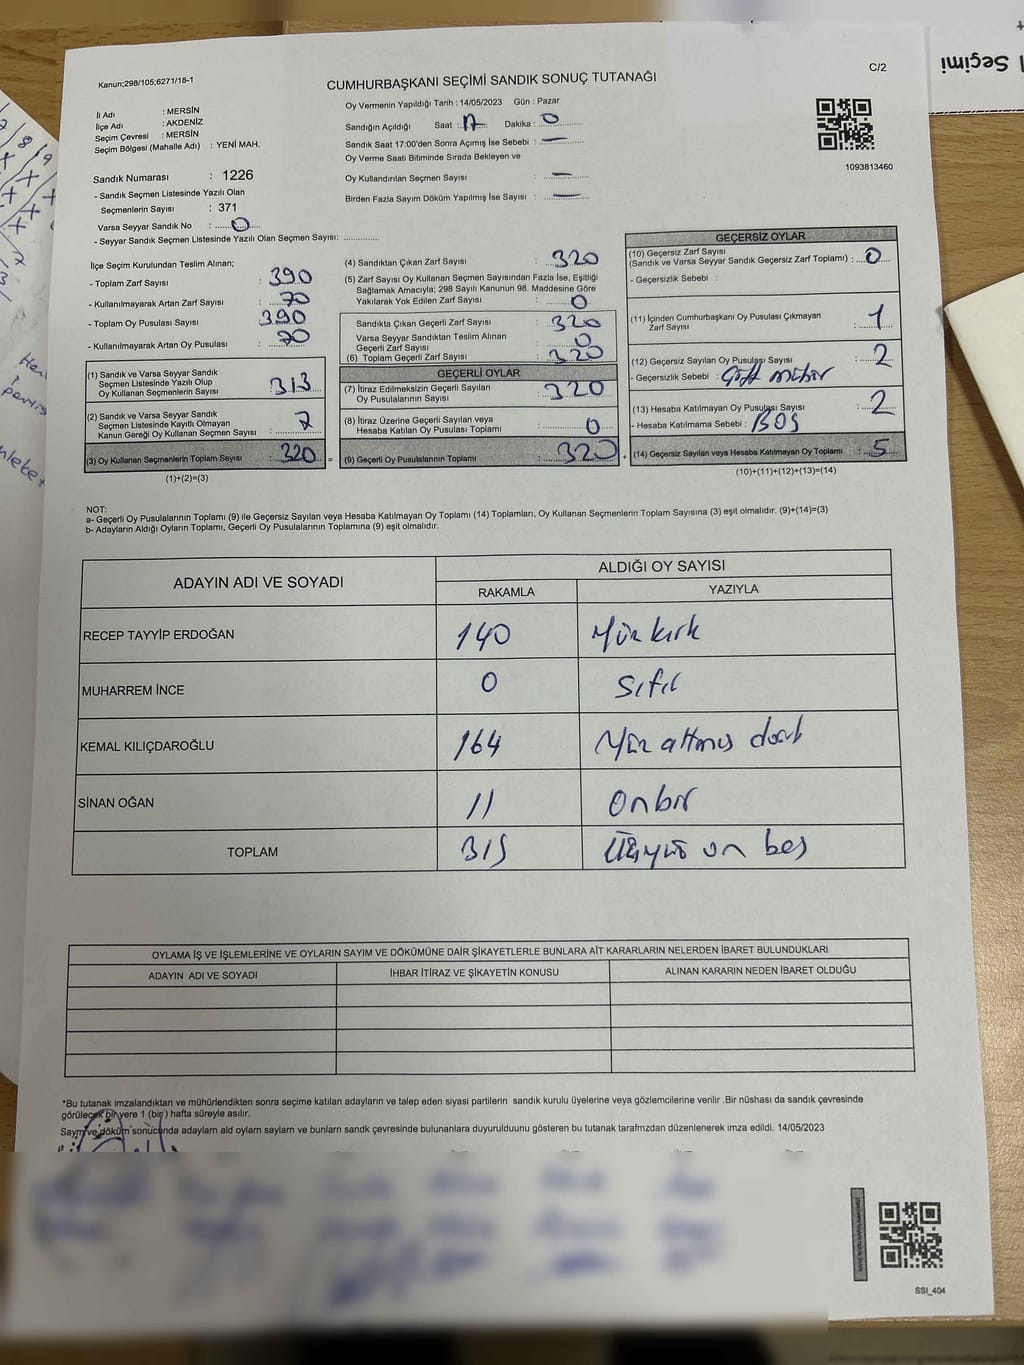 Seçimi
C/2
Kanun;298/105;6271/18-1
CUMHURBAŞKANI SEÇİMİ SANDIK SONUÇ TUTANAĞI
İl Adı : MERSİN
İlçe Adı : AKDENİZ
Seçim Çevresi : MERSİN
Seçim Bölgesi (Mahalle Adı) : YENİ MAH.
Sandık Numarası : 1226
- Sandık Seçmen Listesinde Yazılı Olan
Seçmenlerin Sayısı : 371
Varsa Seyyar Sandık No : 0
- Seyyar Sandık Seçmen Listesinde Yazılı Olan Seçmen Sayısı: ............
Oy Vermenin Yapıldığı Tarih : 14/05/2023 Gün : Pazar
Sandığın Açıldığı Saat : 17 Dakika : 0
Sandık Saat 17:00'den Sonra Açımış İse Sebebi : —
Oy Verme Saati Bitiminde Sırada Bekleyen ve
Oy Kullandırılan Seçmen Sayısı : —
Birden Fazla Sayım Döküm Yapılmış İse Sayısı : —
1093813460
İlçe Seçim Kurulundan Teslim Alınan;
- Toplam Zarf Sayısı : 390
- Kullanılmayarak Artan Zarf Sayısı : 70
- Toplam Oy Pusulası Sayısı : 390
- Kullanılmayarak Artan Oy Pusulası : 70
(1) Sandık ve Varsa Seyyar Sandık
Seçmen Listesinde Yazılı Olup
Oy Kullanan Seçmenlerin Sayısı : 313
(2) Sandık ve Varsa Seyyar Sandık
Seçmen Listesinde Kayıtlı Olmayan
Kanun Gereği Oy Kullanan Seçmen Sayısı : 7
(3) Oy Kullanan Seçmenlerin Toplam Sayısı : 320 =
(1)+(2)=(3)
(4) Sandıktan Çıkan Zarf Sayısı : 320
(5) Zarf Sayısı Oy Kullanan Seçmen Sayısından Fazla İse, Eşitliği
Sağlamak Amacıyla; 298 Sayılı Kanunun 98. Maddesine Göre
Yakılarak Yok Edilen Zarf Sayısı : 0
Sandıkta Çıkan Geçerli Zarf Sayısı : 320
Varsa Seyyar Sandıktan Teslim Alınan
Geçerli Zarf Sayısı : 0
(6) Toplam Geçerli Zarf Sayısı : 320
GEÇERLİ OYLAR
(7) İtiraz Edilmeksizin Geçerli Sayılan
Oy Pusulasının Sayısı : 320
(8) İtiraz Üzerine Geçerli Sayılan veya
Hesaba Katılan Oy Pusulası Toplamı : 0
(9) Geçerli Oy Pusulalarının Toplamı : 320 +
GEÇERSİZ OYLAR
(10) Geçersiz Zarf Sayısı
(Sandık ve Varsa Seyyar Sandık Geçersiz Zarf Toplamı) : 0
- Geçersizlik Sebebi :
(11) İçinden Cumhurbaşkanı Oy Pusulası Çıkmayan
Zarf Sayısı : 1
(12) Geçersiz Sayılan Oy Pusulası Sayısı : 2
- Geçersizlik Sebebi : Çift mühür
(13) Hesaba Katılmayan Oy Pusulası Sayısı : 2
- Hesaba Katılmama Sebebi : BOŞ
(14) Geçersiz Sayılan veya Hesaba Katılmayan Oy Toplamı : 5
(10)+(11)+(12)+(13)=(14)
NOT:
a- Geçerli Oy Pusulalarının Toplamı (9) ile Geçersiz Sayılan veya Hesaba Katılmayan Oy Toplamı (14) Toplamları, Oy Kullanan Seçmenlerin Toplam Sayısına (3) eşit olmalıdır. (9)+(14)=(3)
b- Adayların Aldığı Oyların Toplamı, Geçerli Oy Pusulalarının Toplamına (9) eşit olmalıdır.
ADAYIN ADI VE SOYADI ALDIĞI OY SAYISI
RAKAMLA YAZIYLA
RECEP TAYYİP ERDOĞAN 140 Yüz kırk
MUHARREM İNCE 0 Sıfır
KEMAL KILIÇDAROĞLU 164 Yüz altmış dört
SİNAN OĞAN 11 Onbir
TOPLAM 315 Üçyüz on beş
OYLAMA İŞ VE İŞLEMLERİNE VE OYLARIN SAYIM VE DÖKÜMÜNE DAİR ŞİKAYETLERLE BUNLARA AİT KARARLARIN NELERDEN İBARET BULUNDUKLARI
ADAYIN ADI VE SOYADI İHBAR İTİRAZ VE ŞİKAYETİN KONUSU ALINAN KARARIN NEDEN İBARET OLDUĞU
*Bu tutanak imzalandıktan ve mühürlendikten sonra seçime katılan adayların ve talep eden siyasi partilerin sandık kurulu üyelerine veya gözlemcilerine verilir .Bir nüshası da sandık çevresinde
görülecek bir yere 1 (bir) hafta süreyle asılır.
Sayım ve döküm sonucunda adayların ald oyların sayları ve bunların sandk çevresinde bulunanlara duyurulduunu gösteren bu tutanak tarafmzdan düzenlenerek imza edildi. 14/05/2023
SSI_404